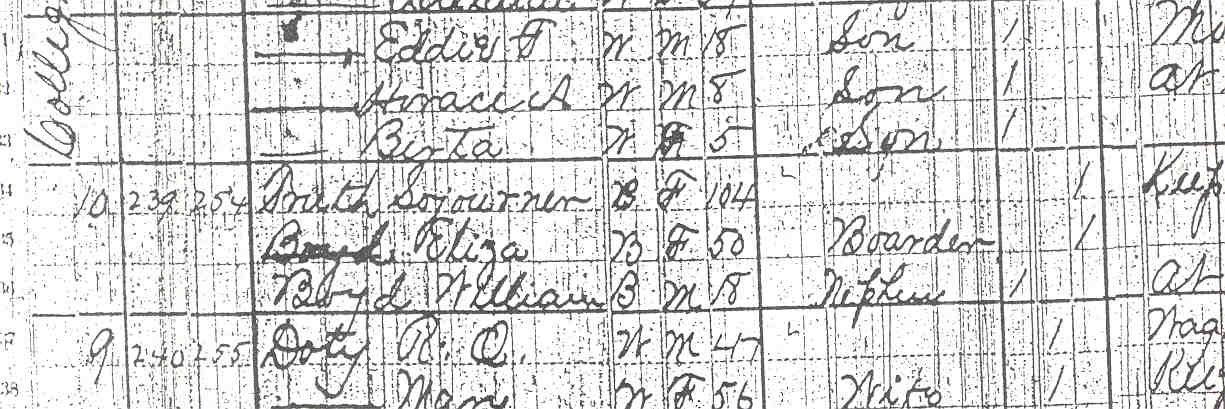 Eddie F W M 18 Son 1
Horace A W M 8 Son 1 At
Birta W F 5 Son 1
10 239 254 Truth Sojourner B F 104 1 Keep
Boyd Eliza B F 50 Boarder 1
Boyd William B M 18 Nephew 1 At
9 240 255 Doty R. Q. W M 47 1 Wag
38 Mary W F 56 Wife 1